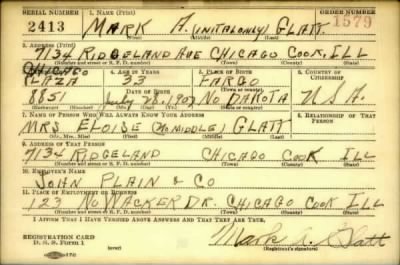 SERIAL NUMBER 1. NAME (Print) ORDER NUMBER
2413 MARK A. (INITIAL ONLY) GLATT 1579
(First) (Middle) (Last)
2. ADDRESS (Print)
7134 RIDGELAND AVE CHICAGO COOK, ILL
(Number and street or R. F. D. number) (Town) (County) (State)
3. TELEPHONE 4. AGE IN YEARS 5. PLACE OF BIRTH 6. COUNTRY OF CITIZENSHIP
CHICAGO
PLAZA 33 FARGO
DATE OF BIRTH (Town or county)
8857 July 28, 1907 NO DAKOTA USA.
(Exchange) (Number) (Mo.) (Day) (Yr.) (State or country)
7. NAME OF PERSON WHO WILL ALWAYS KNOW YOUR ADDRESS 8. RELATIONSHIP OF THAT PERSON
MRS ELOISE (NO MIDDLE) GLATT
(Mr., Mrs., Miss) (First) (Middle) (Last)
9. ADDRESS OF THAT PERSON
7134 RIDGELAND CHICAGO COOK ILL
(Number and street or R. F. D. number) (Town) (County) (State)
10. EMPLOYER'S NAME
JOHN PLAIN & CO
11. PLACE OF EMPLOYMENT OR BUSINESS
123 NO WACKER DR. CHICAGO COOK ILL
(Number and street or R. F. D. number) (Town) (County) (State)
I AFFIRM THAT I HAVE VERIFIED ABOVE ANSWERS AND THAT THEY ARE TRUE.
REGISTRATION CARD
D. S. S. Form 1 Mark A. Glatt
(Registrant's signature)